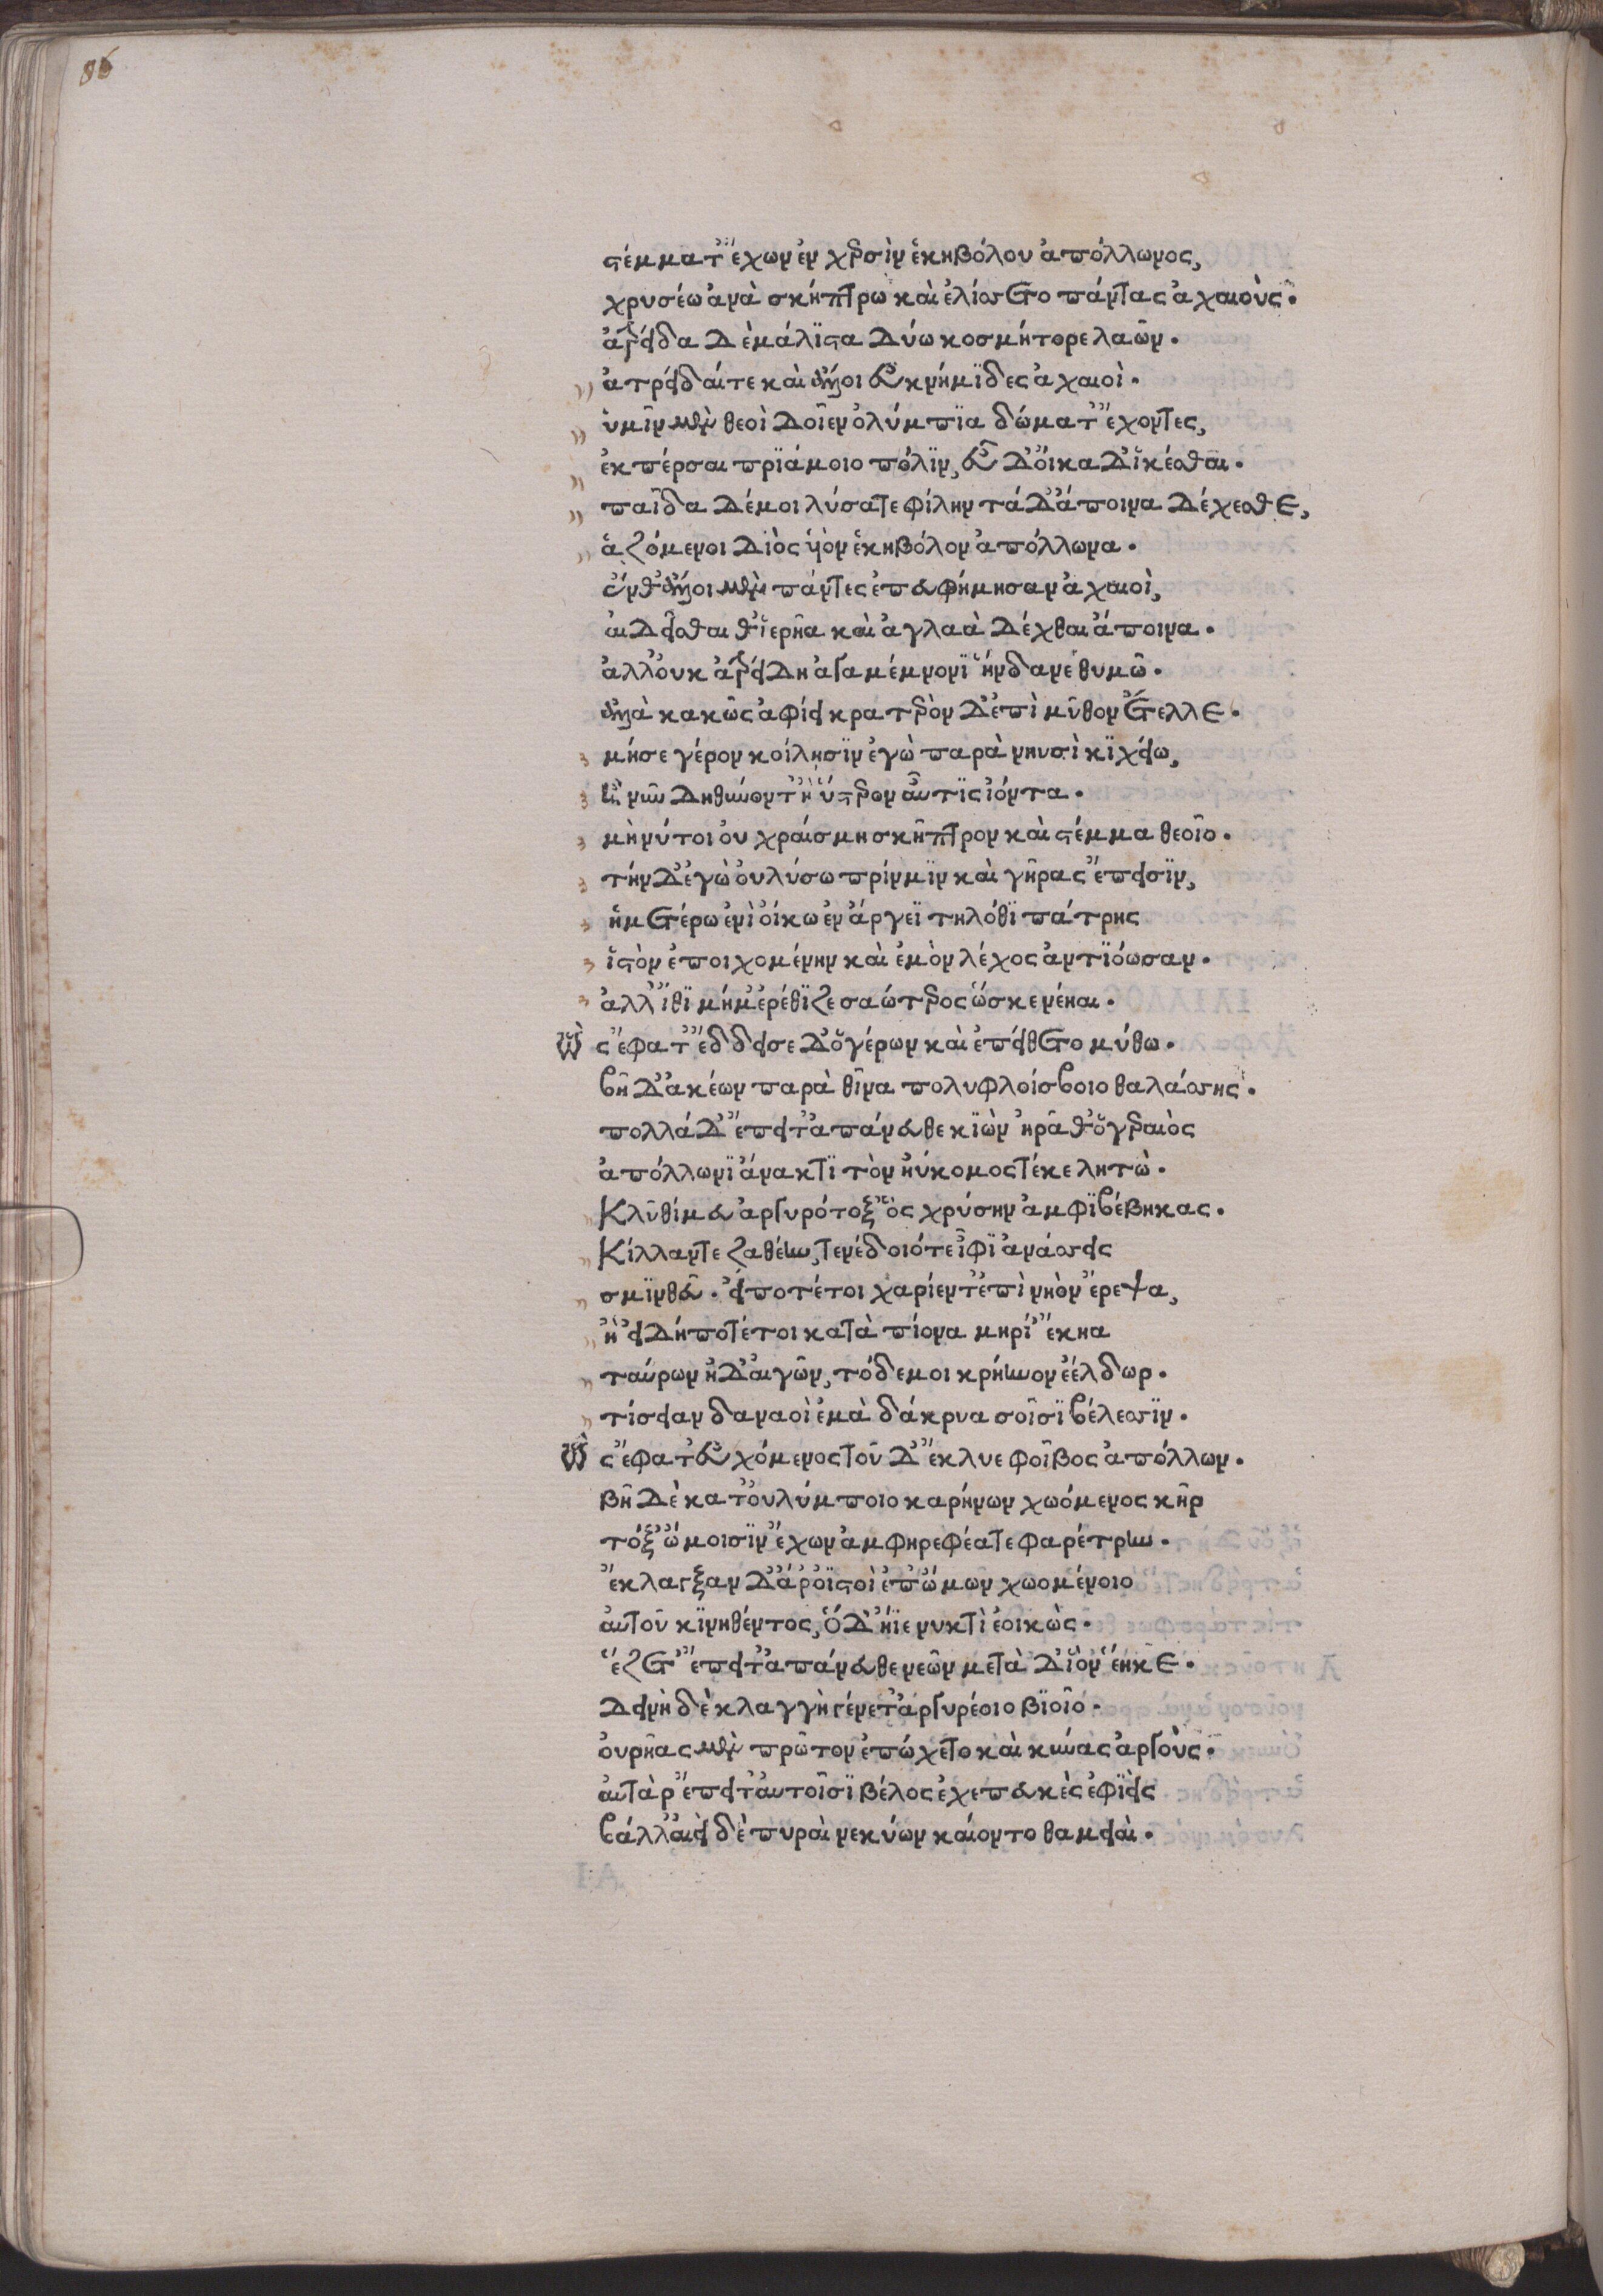 86
στέμματ' ἔχων ἐν χερσὶν ἑκηβόλου ἀπόλλωνος,
χρυσέω ἀνὰ σκήπτρω καὶ ἐλίσσετο πάντας ἀχαιοὺς.
ἀτρείδα δὲ μάλϊστα δύω κοσμήτορε λαῶν.
ἀτρείδαί τε καὶ ἄλλοι ἐυκνήμϊδες ἀχαιοὶ.
ὑμῖν μὲν θεοὶ δοῖεν ὀλύμπϊα δώματ' ἔχοντες,
ἐκπέρσαι πρϊάμοιο πόλϊν, εὖ δ' ὄικαδ' ἱκέσθαι.
παῖδα δέ μοι λύσατε φίλην τά δ' ἄποινα δέχεσθε,
ἁζόμενοι διὸς ὑιὸν ἑκηβόλον ἀπόλλωνα.
ἔνθ' ἄλλοι μὲν πάντες ἐπευφήμησαν ἀχαιοὶ,
αἰδεῖσθαι θ' ἱερῆα καὶ ἀγλαὰ δέχθαι ἄποινα.
ἀλλ' ὀυκ ἀτρείδη ἀγαμέμνονϊ ἥνδανε θυμῶ.
ἀλλὰ κακῶς ἀφίει κρατερὸν δ' ἐπὶ μῦθον ἔτελλε.
μή σε γέρον κοίλησϊν ἐγὼ παρὰ νηυσὶ κϊχείω,
ἢ νῦν δηθύνοντ' ἢ ὕστερον ἂυτϊς ἰόντα.
μὴ νύ τοι ὀυ χραίσμη σκῆπτρον καὶ στέμμα θεοῖο.
τὴν δ' ἐγὼ ὀυ λύσω πρίν μϊν καὶ γῆρας ἔπεισϊν,
ἡμετέρω ἐνὶ ὀίκω ἐν ἄργεϊ τηλόθϊ πάτρης
ἱστὸν ἐποιχομένην καὶ ἐμὸν λέχος ἀντϊόωσαν.
ἀλλ' ἴθϊ μή μ' ἐρέθϊζε σαώτερος ὥσκε νέηαι.
Ὣς ἔφατ' ἔδδεισε δ' ὁ γέρων καὶ ἐπείθετο μύθω.
βῆ δ' ἀκέων παρὰ θῖνα πολυφλοίσβοιο θαλάσσης.
πολλά δ' ἔπειτ' ἀπάνευθε κϊὼν ἠρᾶθ' ὁ γεραιὸς
ἀπόλλωνϊ ἄνακτϊ τὸν ἠύκομος τέκε λητὼ.
Κλῦθί μευ ἀργυρότοξ' ὃς χρύσην ἀμφϊβέβηκας.
Κίλλαν τε ζαθέην, τενέδοιό τε ἶφϊ ἀνάσσεις
σμϊνθεῦ. εἴποτέ τοι χαρίεντ' ἐπὶ νηὸν ἔρεψα,
ἢ εἰ δή ποτέ τοι κατὰ πίονα μηρί' ἔκηα
ταύρων ἠδ' ἀιγῶν, τόδε μοι κρήηνον ἐέλδωρ.
τίσειαν δαναοὶ ἐμὰ δάκρυα σοῖσϊ βέλεσσϊν.
Ὣς ἔφατ' ἐυχόμενος τοῦ δ' ἔκλυε φοῖβος ἀπόλλων.
βῆ δὲ κατ' ὀυλύμποιο καρήνων χωόμενος κῆρ
τόξ' ὤμοισϊν ἔχων ἀμφηρεφέα τε φαρέτρην.
ἔκλαγξαν δ' ἄρ' ὀϊστοὶ ἐπ' ὤμων χωομένοιο
ἀυτοῦ κϊνηθέντος, ὃ δ' ἤϊε νυκτὶ ἐοικὼς.
ἕζετ' ἔπειτ' ἀπάνευθε νεῶν μετὰ δ' ἰὸν ἕηκε.
δεινὴ δὲ κλαγγὴ γένετ' ἀργυρέοιο βϊοῖο.
ὀυρῆας μὲν πρῶτον ἐπώχετο καὶ κύνας ἀργοὺς.
ἀυτὰρ ἔπειτ' ἀυτοῖσϊ βέλος ἐχεπευκὲς ἐφϊεὶς
βάλλ' ἀιεὶ δὲ πυραὶ νεκύων καίοντο θαμειαὶ.